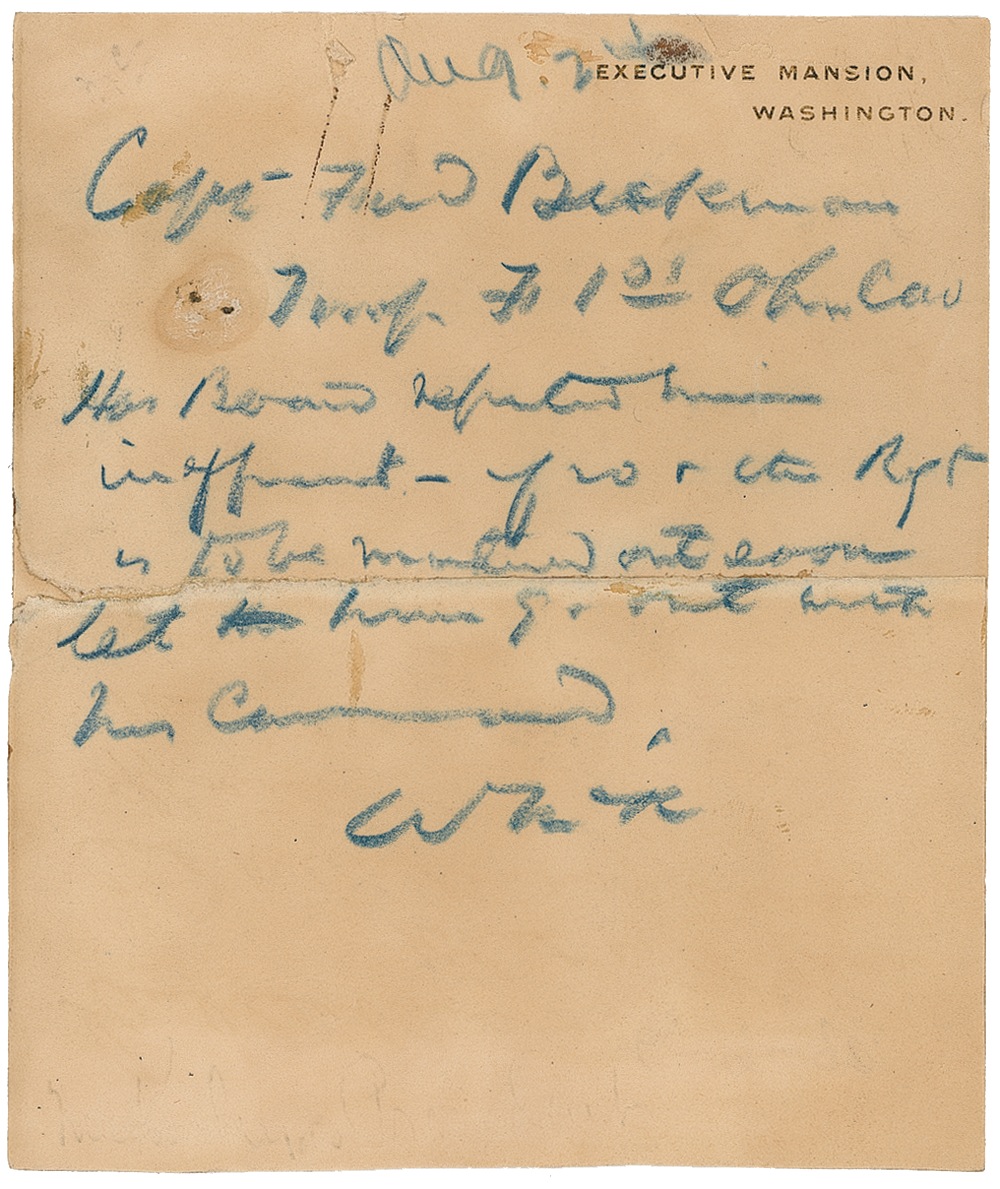 Aug. 2
EXECUTIVE MANSION,
WASHINGTON.
Capt Fred Beckman
Troop F 1st Ohio Cav
Has Board reported him
inefficient - if so & the Rgt
is to be mustered out soon
let him go out with
his Command.